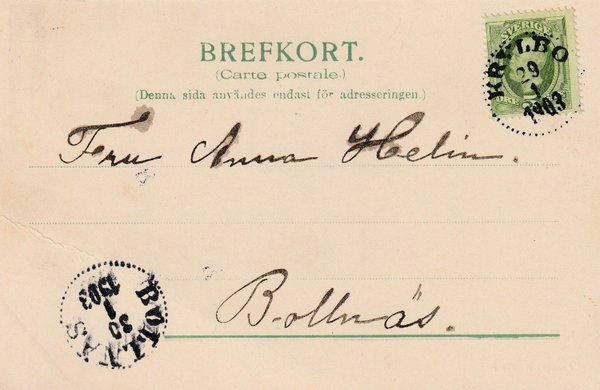 BREFKORT.
(Carte postale.)
(Denna sida användes endast för adresseringen.)
SVERIGE
ÖRE
KRYLBO
29
1
1903
Fru Anna Helin.
Bollnäs.
BOLLNÄS
30
1
1903